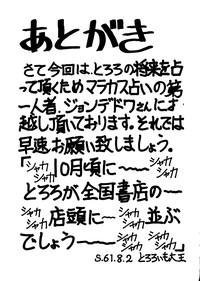 あとがき
さて今回は、とろろの将来を占
って頂くためマラカス占いの第
一人者、ジョンデドワさんにお
越し頂いております。それでは
早速お願い致しましょう。
「シャカシャカ10月頃に〜シャカシャカ
とろろが全国書店の〜
シャカシャカ店頭に〜シャカシャカ並ぶ
でしょう〜〜シャカシャカシャカシャカ」
S.61.8.2 とろろいも大王